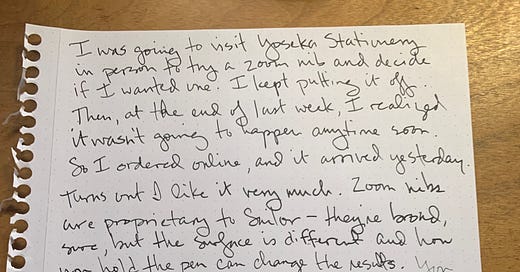 I was going to visit Yoseka Stationery
in person to try a zoom nib and decide
if I wanted one. I kept putting it off.
Then, at the end of last week, I realized
it wasn't going to happen anytime soon.
So I ordered online, and it arrived yesterday.
Turns out I like it very much. Zoom nibs
are proprietary to Sailor – they're broad,
sure, but the surface is different and how
you hold the pen can change the results. You